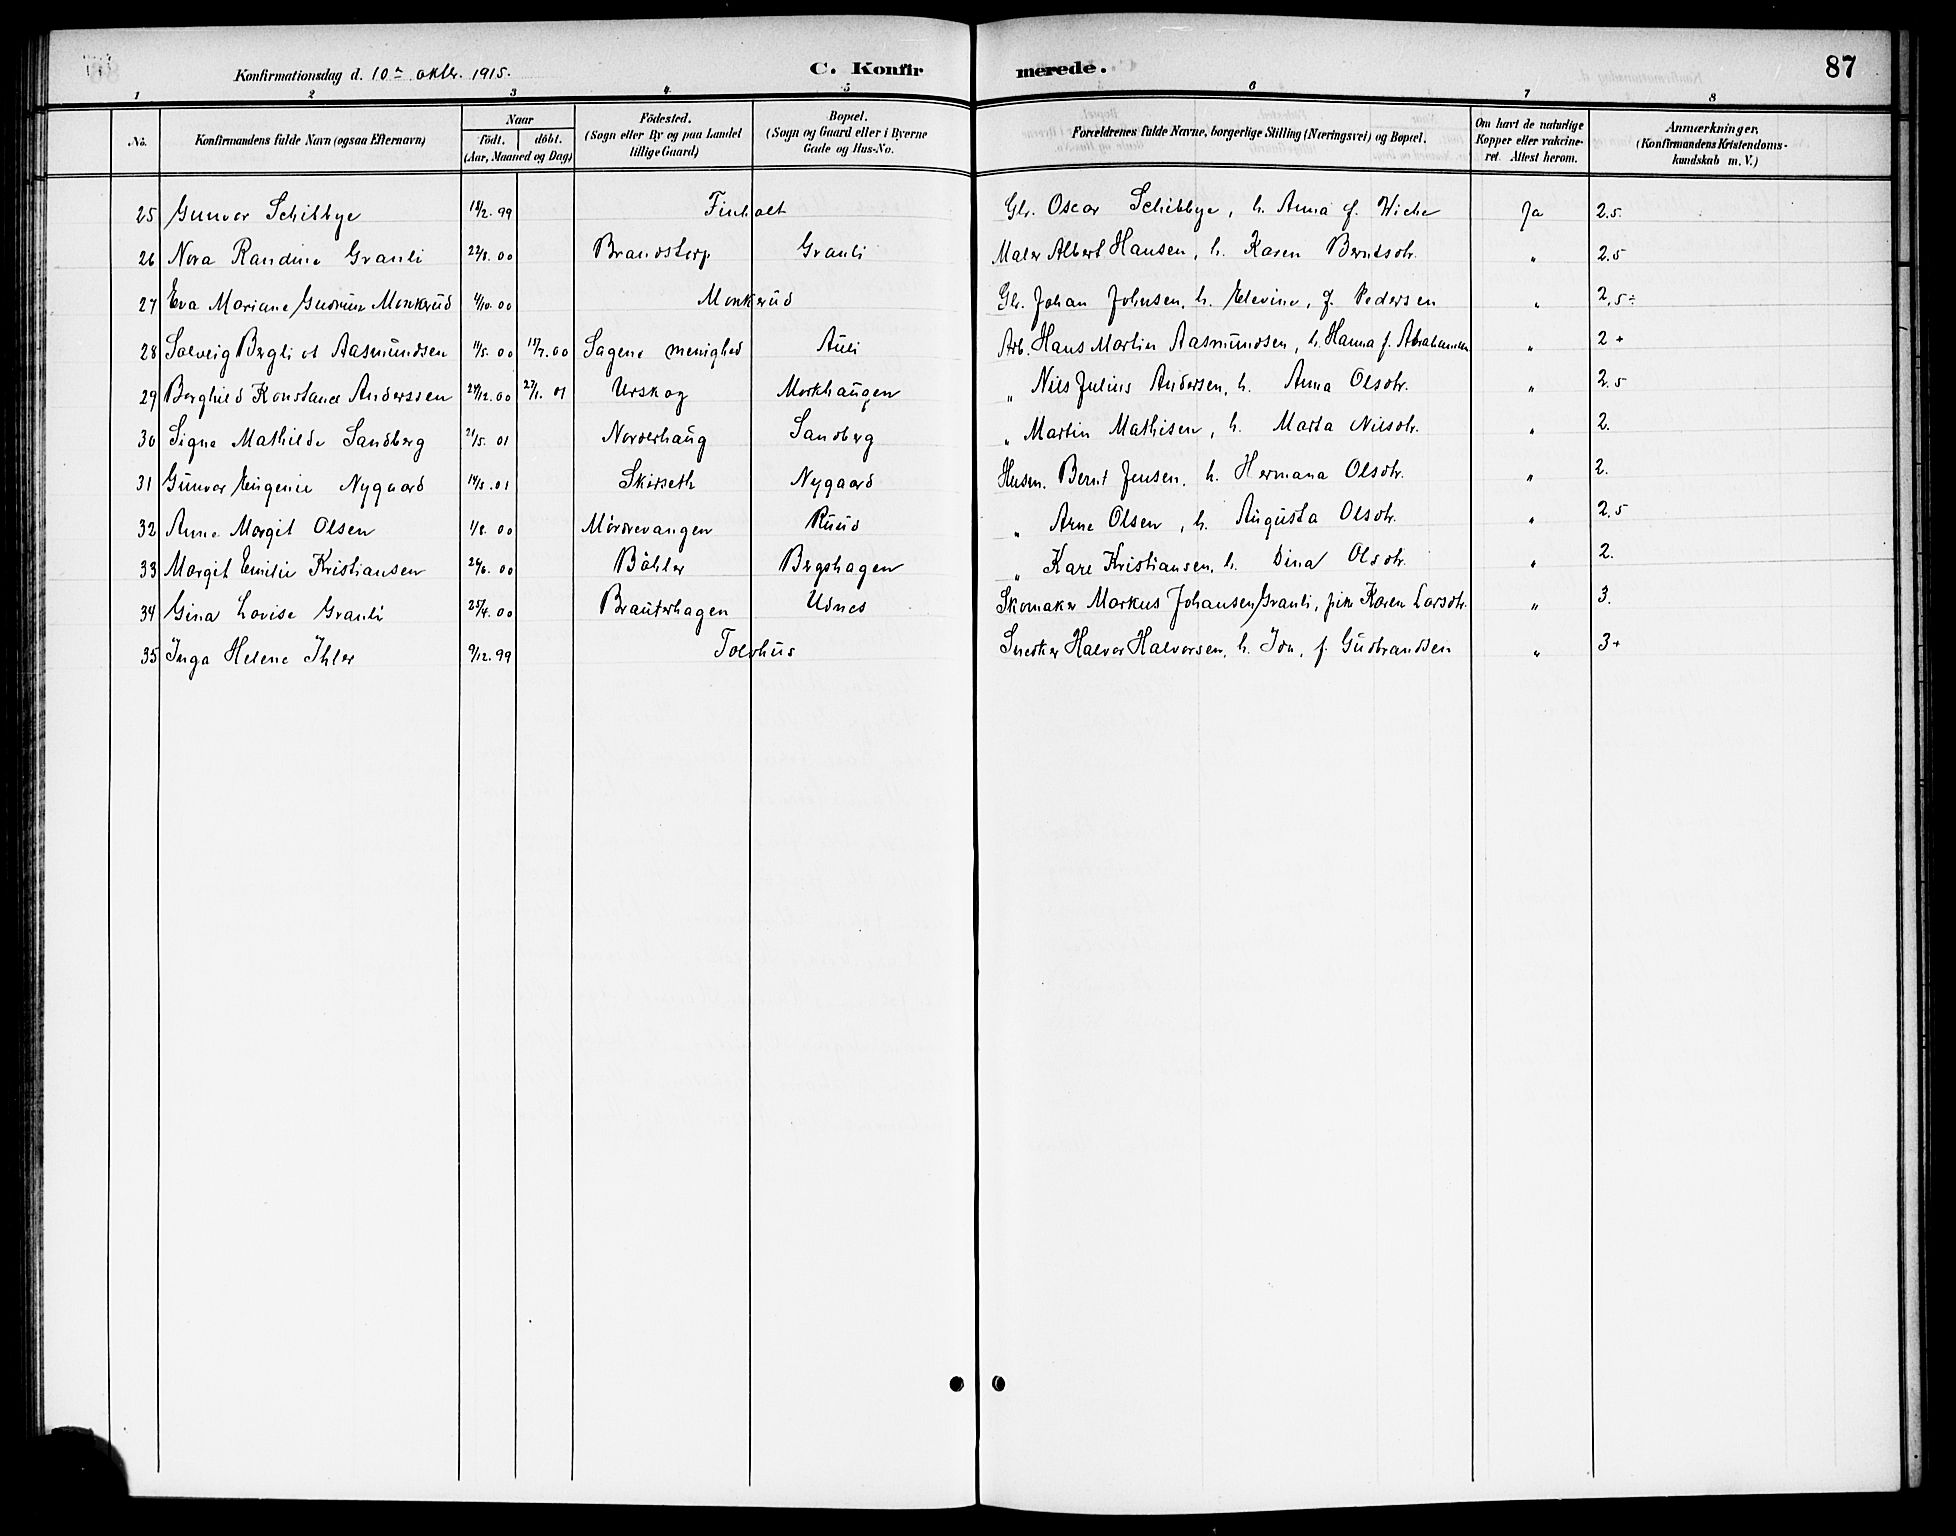 Konfirmationsdag d. 10de oktbr. 1915.
C. Konfirmerede.
87
1 2 3 4 5 6 7 8
No.
Konfirmandens fulde Navn (ogsaa Efternavn)
Naar
født. døbt.
(Aar, Maaned og Dag)
Födested.
(Sogn eller By og paa Landet
tillige Gaard)
Bopæl.
(Sogn og Gaard eller i Byerne
Gade og Hus-No.
Forældrenes fulde Navne, borgerlige Stilling (Næringsvei) og Bopæl.
Om havt de naturlige
Kopper eller vakcine-
ret. Attest herom.
Anmærkninger.
(Konfirmandens Kristendoms-
kundskab m. V.)
25 Gunvor Schibbye 18/2. 99 Finholt Gbr. Oscar Schibbye, h. Anna f. Wiche Ja 2.5.
26 Nora Randine Granli 22/8. 00 Brandstorp Granli Maler Albert Hansen, h. Karen Berntsdtr. " 2.5
27 Eva Mariane Gudrun Monkrud 4/10. 00 Monkrud Gbr. Johan Johnsen, h. Edevine, f. Pedersen " 2,5÷
28 Solveig Bergliot Aasmundsen 11/5. 00 15/7. 00 Sagene menighed Auli Arb. Hans Martin Aasmundsen, h. Hanna f. Abrahamsen " 2+
29 Borghild Konstance Anderssen 25/12. 00 27/1. 01 Urskog Morkhaugen " Nils Julius Andersen, h. Anna Olsdtr. " 2.5
30 Signe Mathilde Sandberg 21/5. 01 Norderhaug Sandberg " Martin Mathisen, h. Marta Nilsdtr. " 2.
31 Gunvor Eugenie Nygaard 14/8. 01 Skirseth Nygaard Husm. Bernt Jensen, h. Hermana Olsdtr. " 2.
32 Anne Margit Olsen 1/8. 00 Mördrevangen Ruud " Arne Olsen, h. Augusta Olsdtr. " 2.5
33 Margit Emilie Kristiansen 26/6. 00 Böhler Bergshagen " Karl Kristiansen, h. Dina Olsdtr. " 2.
34 Gina Lovise Granli 25/4. 00 Brauterhagen Udnes Skomaker Markus Johansen Granli, pike Karen Larsdtr. " 3.
35 Inga Helene Ihler 9/12. 99 Toldhus Snedker Halvor Halvorsen, h. Ida, f. Gudbrandsen " 3+